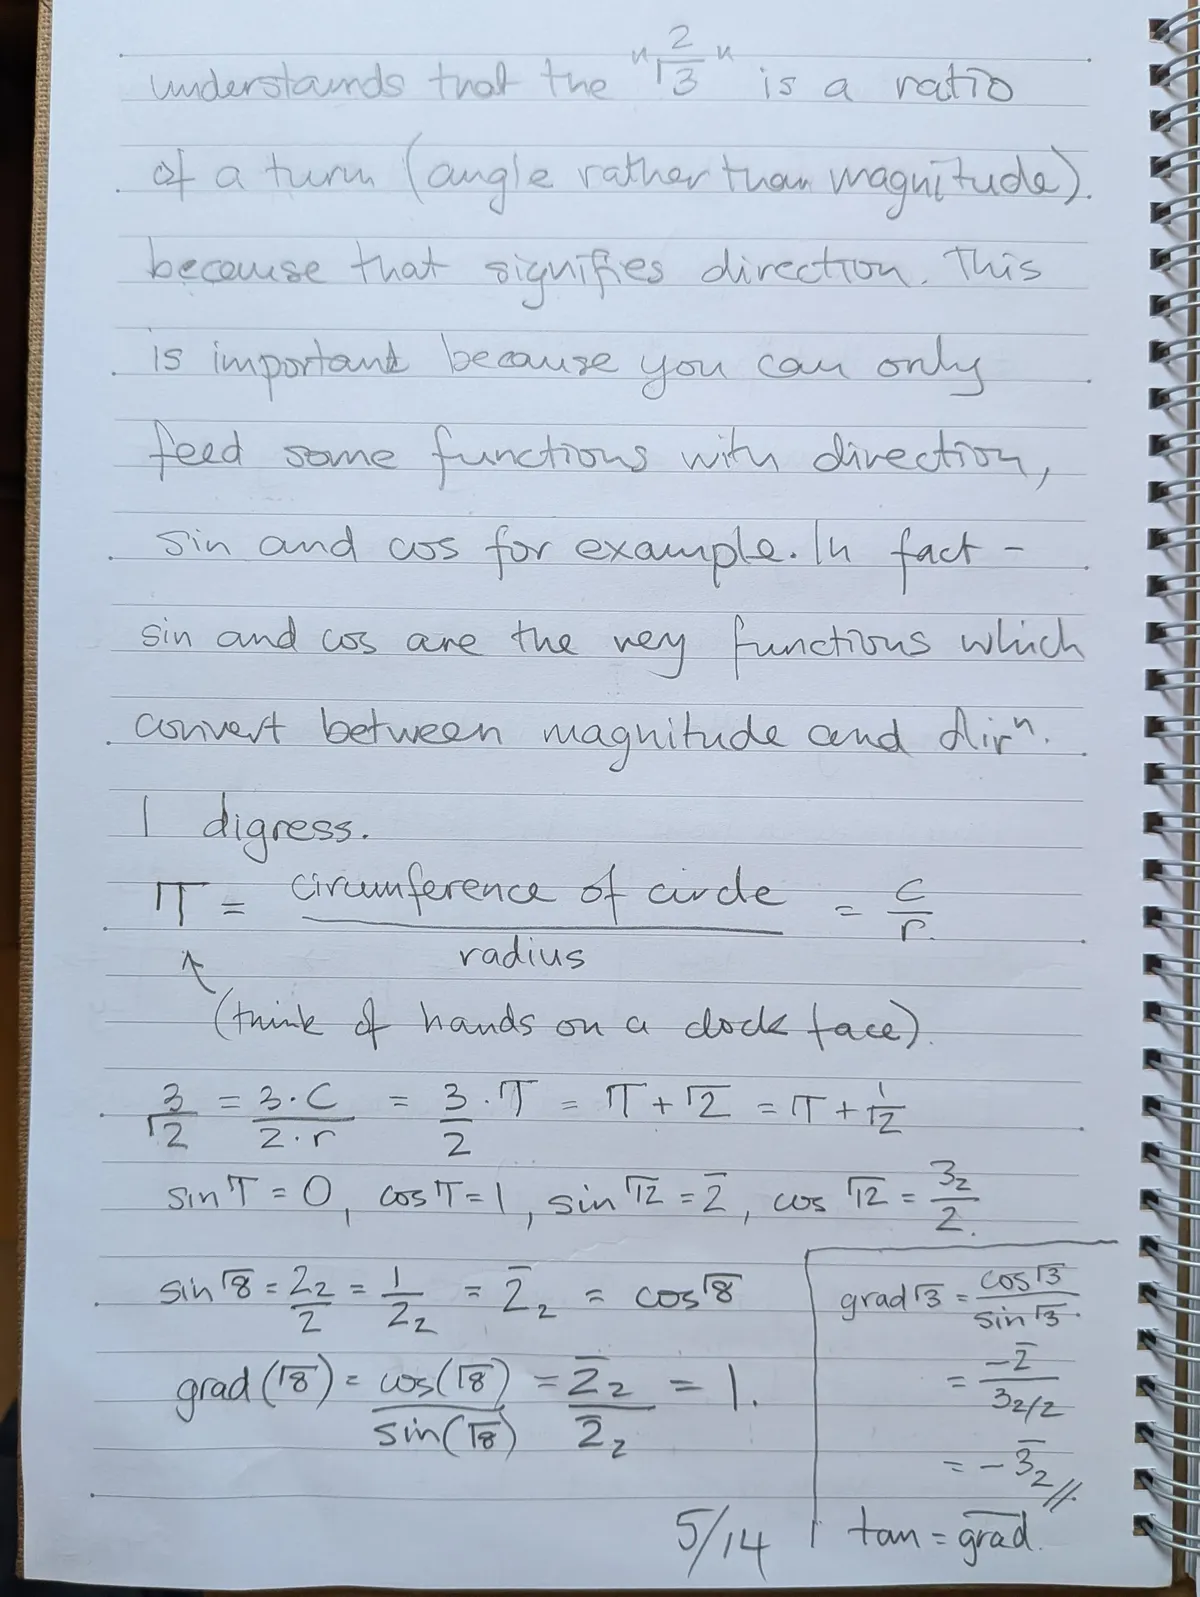 understands that the "2/Γ3" is a ratio
of a turn (angle rather than magnitude).
because that signifies direction. This
is important because you can only
feed some functions with direction,
sin and cos for example. In fact -
sin and cos are the very functions which
convert between magnitude and dirⁿ.
I digress.
ΙT = circumference of circle / radius = c/r.
↑
(think of hands on a clock face).
3/Γ2 = 3·C/2·r = 3/2 · ΙT = ΙT + Γ2̅ = ΙT + 1/Γ2
sin ΙT = 0, cos ΙT = 1, sin Γ1̅2̅ = 2̅, cos Γ1̅2̅ = 3₂/2.
sin Γ8̅ = 2₂/2 = 1/2₂ = 2̅₂ = cos Γ8̅
grad (Γ8̅) = cos(Γ8̅)/sin(Γ8̅) = 2̅₂/2̅₂ = 1.
grad Γ3̅ = cos Γ3̅/sin Γ3̅.
= -2̅/3₂/2
= -3̅₂//.
tan = g̅r̅a̅d̅.
5/14